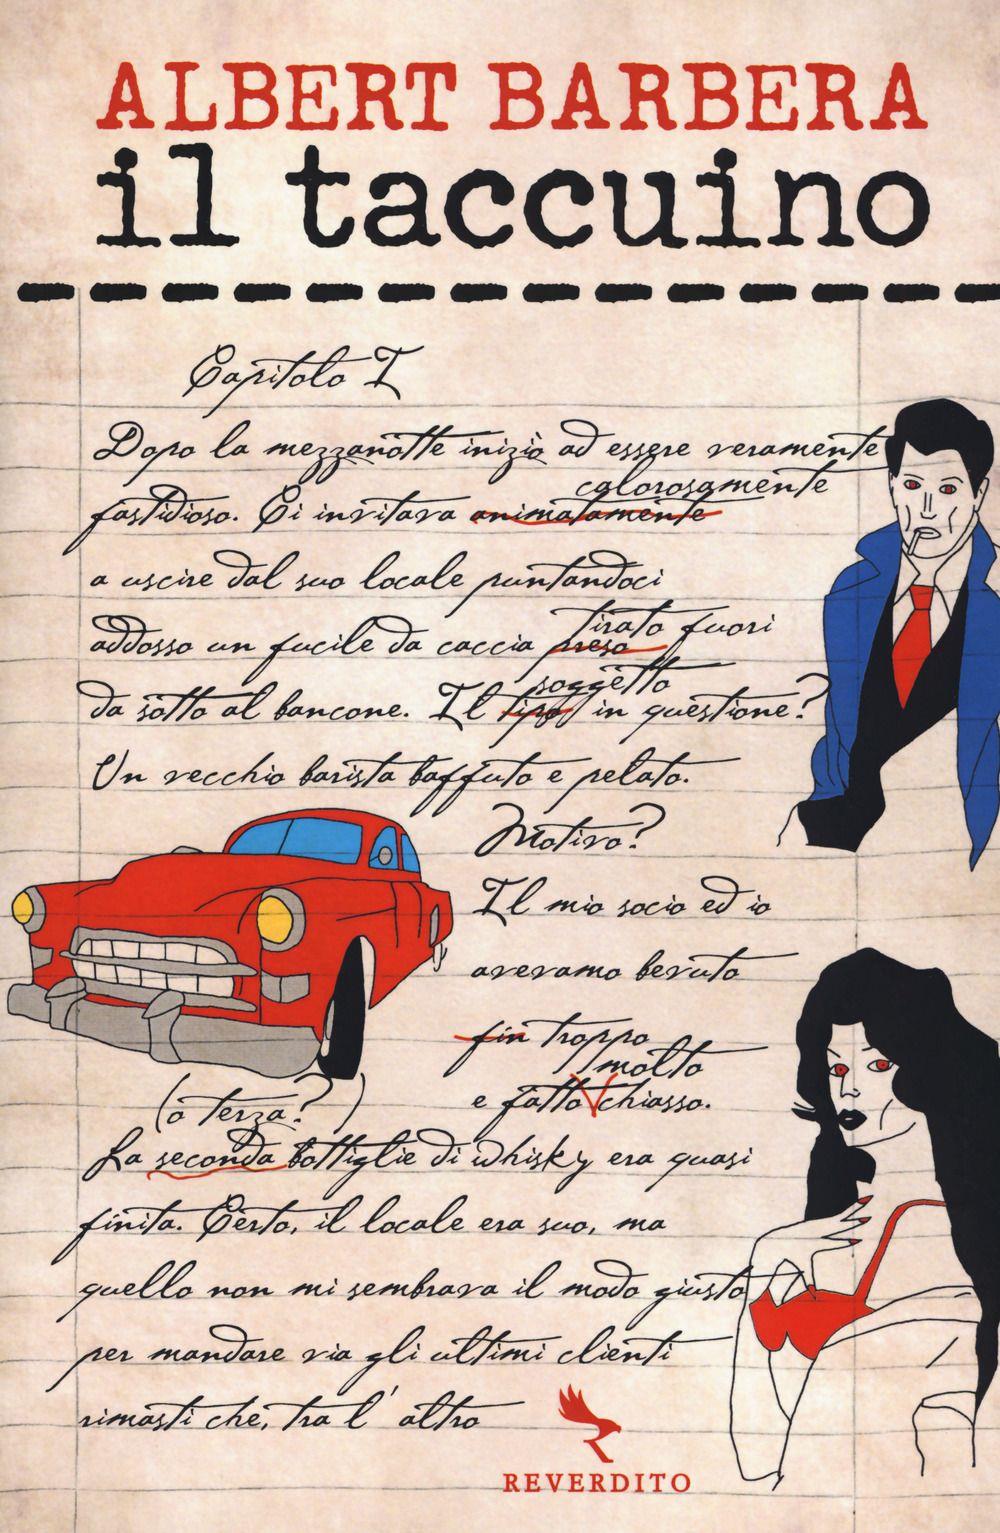 ALBERT BARBERA
il taccuino
Capitolo I
Dopo la mezzanotte iniziò ad essere veramente
calorosamente
fastidioso. Ci invitava animatamente
a uscire dal suo locale puntandoci
tirato fuori
addosso un fucile da caccia preso
soggetto
da sotto al bancone. Il tipo in questione?
Un vecchio barista baffuto e pelato.
Motivo?
Il mio socio ed io
avevamo bevuto
fin troppo
molto
e fatto V chiasso.
(o terza?)
La seconda bottiglie di whisky era quasi
finita. Certo, il locale era suo, ma
quello non mi sembrava il modo giusto
per mandare via gli ultimi clienti
rimasti che, tra l' altro
REVERDITO